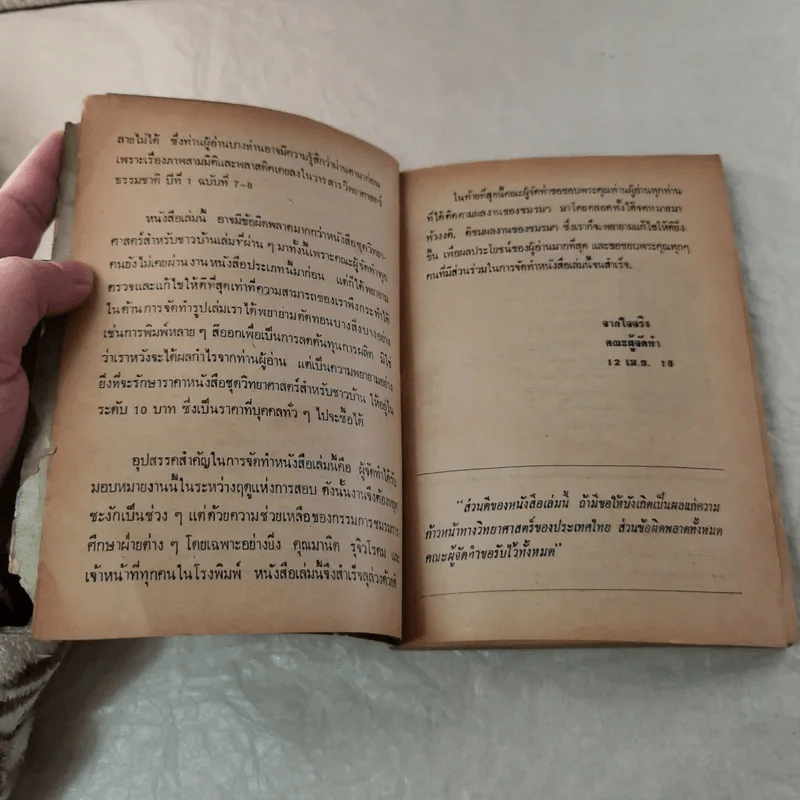 ลายไม่ได้ ซึ่งท่านผู้อ่านบางท่านอาจมีความรู้สึกว่าผ่านตามาก่อน
เพราะเรื่องภาพสามมิติและพลาสติคเคยลงในวารสารวิทยาศาสตร์
ธรรมชาติ ปีที่ 1 ฉบับที่ 7-8
หนังสือเล่มนี้ อาจมีข้อผิดพลาดมากกว่าหนังสือชุดวิทยา-
ศาสตร์สำหรับชาวบ้านเล่มที่ผ่าน ๆ มาทั้งนี้เพราะคณะผู้จัดทำทุก
คนยังไม่เคยผ่านงานหนังสือประเภทนี้มาก่อน แต่ก็ได้พยายาม
ตรวจและแก้ไขให้ดีที่สุดเท่าที่ความสามารถของเราพึงกระทำได้
ในด้านการจัดทำรูปเล่มเราได้พยายามตัดทอนบางสิ่งบางอย่าง
เช่นการพิมพ์หลาย ๆ สีออกเพื่อเป็นการลดต้นทุนการผลิต มิใช่
ว่าเราหวังจะได้ผลกำไรจากท่านผู้อ่าน แต่เป็นความพยายามอย่าง
ยิ่งที่จะรักษาราคาหนังสือชุดวิทยาศาสตร์สำหรับชาวบ้าน ให้อยู่ใน
ระดับ 10 บาท ซึ่งเป็นราคาที่บุคคลทั่ว ๆ ไปจะซื้อได้
อุปสรรคสำคัญในการจัดทำหนังสือเล่มนี้คือ ผู้จัดทำได้รับ
มอบหมายงานนี้ในระหว่างฤดูแห่งการสอบ ดังนั้นงานจึงต้องหยุด
ชะงักเป็นช่วง ๆ แต่ด้วยความช่วยเหลือของกรรมการชมรมการ
ศึกษาฝ่ายต่าง ๆ โดยเฉพาะอย่างยิ่ง คุณมานิต รุจิวโรดม และ
เจ้าหน้าที่ทุกคนในโรงพิมพ์ หนังสือเล่มนี้จึงสำเร็จลุล่วงด้วยดี
ในท้ายที่สุดนี้คณะผู้จัดทำขอขอบพระคุณท่านผู้อ่านทุกท่าน
ที่ได้ติดตามผลงานของชมรมฯ มาโดยตลอดทั้งได้จดหมายมา
ท้วงงติ, ติชมผลงานของชมรมฯ ซึ่งเราก็จะพยายามแก้ไขให้ดียิ่ง
ขึ้น เพื่อผลประโยชน์ของผู้อ่านมากที่สุด และขอขอบพระคุณทุกๆ
คนที่มีส่วนร่วมในการจัดทำหนังสือเล่มนี้จนสำเร็จ.
จากใจจริง
คณะผู้จัดทำ
12 เม.ย. 18
"ส่วนดีของหนังสือเล่มนี้ ถ้ามีขอให้บังเกิดเป็นผลแก่ความ
ก้าวหน้าทางวิทยาศาสตร์ของประเทศไทย ส่วนข้อผิดพลาดทั้งหมด
คณะผู้จัดทำขอรับไว้ทั้งหมด"